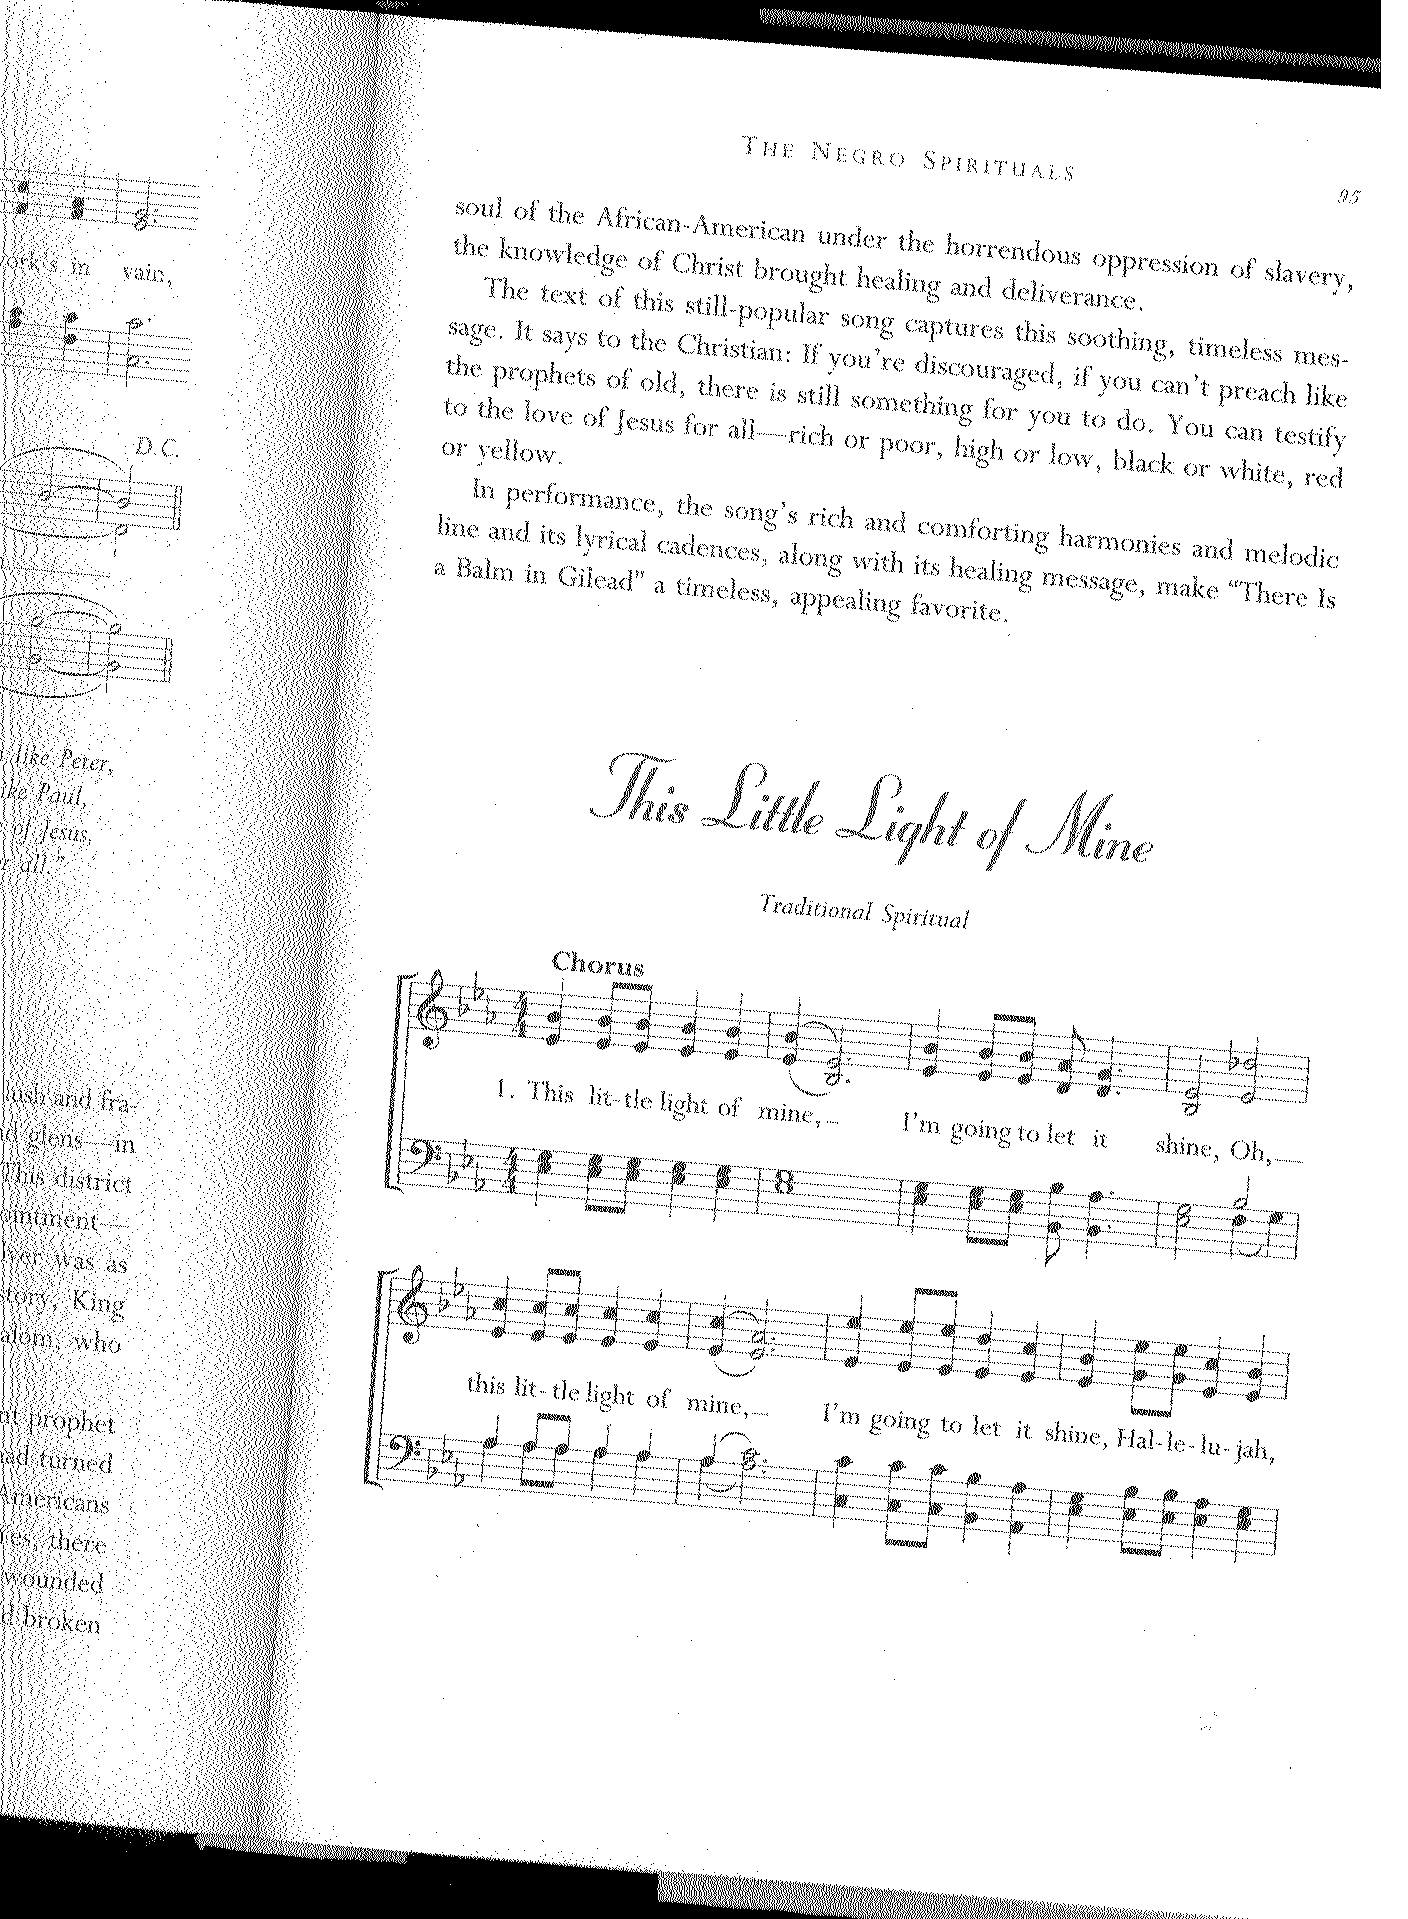 vain,
D.C.
like Peter,
Paul,
of Jesus,
all."
and fra-
glens—in
This district
was as
King
who
prophet
had turned
Americans
there
wounded
broken
THE NEGRO SPIRITUALS
95
soul of the African-American under the horrendous oppression of slavery,
the knowledge of Christ brought healing and deliverance.
The text of this still-popular song captures this soothing, timeless mes-
sage. It says to the Christian: If you're discouraged, if you can't preach like
the prophets of old, there is still something for you to do. You can testify
to the love of Jesus for all—rich or poor, high or low, black or white, red
or yellow.
In performance, the song's rich and comforting harmonies and melodic
line and its lyrical cadences, along with its healing message, make "There Is
a Balm in Gilead" a timeless, appealing favorite.
This Little Light of Mine
Traditional Spiritual
Chorus
1. This lit-tle light of mine,_ I'm going to let it shine, Oh,—
this lit-tle light of mine,_ I'm going to let it shine, Hal-le-lu-jah,